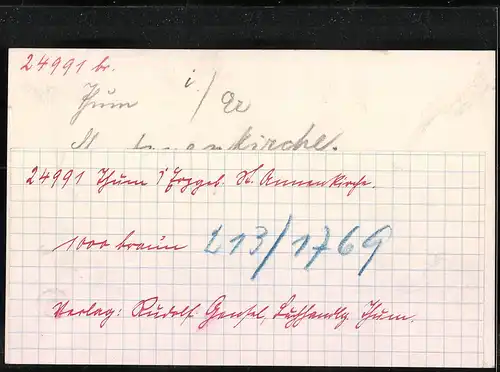 24991 br.
Thum i/Er
St. Annenkirche.
24991 Thum i/Erzgeb. St. Annenkirche.
1000 braun 213/1769
Verlag: Rudolf Gensel, Buchhandlg. Thum.